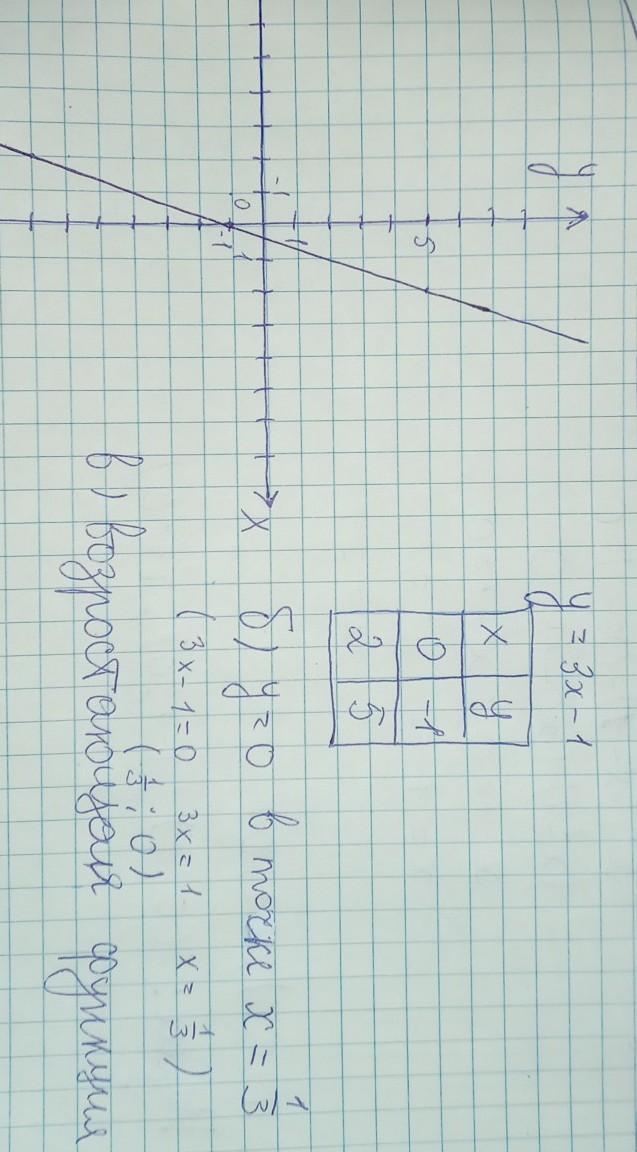 y = 3x-1
x y
0 -1
2 5
y
5
1
-1
0
1
-1
x
б) y=0 в точке x = 1/3
(3x-1=0 3x=1 x= 1/3)
(1/3; 0)
в) возростающая функция